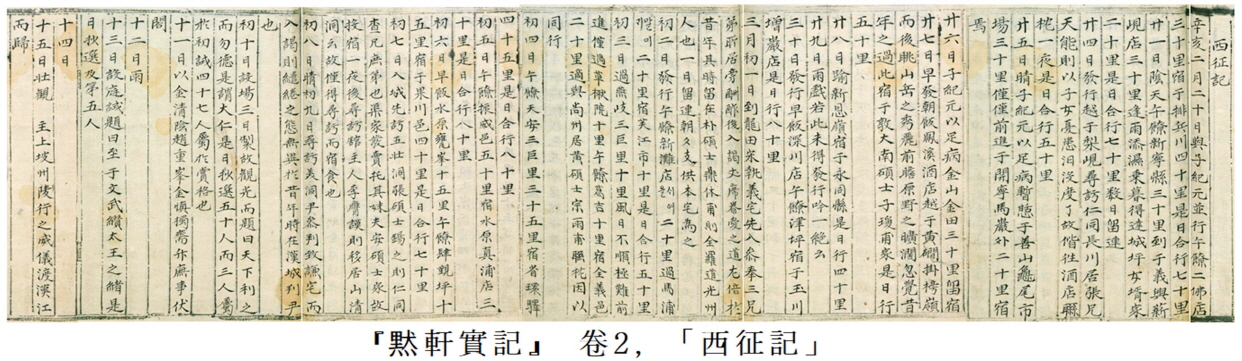 西征記
辛亥二月二十日與子紀元並行午餘二佛店
三十里宿于排兵川四十里是日合行七十里
廿一日陰天午餘新寧縣三十里到于義興新
峴店三十里逢雨添漏乘暮得達城坪女壻家
二十里是日合行八十里數日留連
廿四日發行越于梨峴尋訪仁同長川居張兄
天能則以子女憂患汨沒度了故偕往酒店聯
枕一夜是日合行五十里
廿五日晴子紀元以足病暫憩于善山龜尾市
場三十里僅僅前進于開寧馬巖外二十里宿
焉
廿六日子紀元以足病金山金田三十里留宿
廿七日早發朝飯鳳溪酒店越于黃澗掛榜嶺
而後眺山岳之秀麗前膽原野之曠濶忽覺昔
年之過此宿于敦大南碩士子瓊甫家是日行
五十里
廿八日踰新恩嶺宿于永同縣是日行四十里
廿九日雨戱若此未得發行吟一絶云
三十日發行早飯深川店午餘津坪宿于玉川
增巖店是日行八十里
三月初一日到龍田宋執義宅先入參奉三兄
第所居旁酬酢後入謁丈席眷愛之道尤倍於
昔年其時留在朴碩士樂休甫則全羅道光州
人也一日留連朝夕支供本宅爲之
初二日發行午餘新灘店二十里過馬浦
二十里宿芙江市十里是日合行五十里
初三日過燕岐三巨里十里風日不順極難前
進僅過草楸院十里午餘葛吉十里宿全義邑
二十里適與尙州居黃碩士宗甫聯枕因以
同行
初四日午餘天安三巨里三十五里宿省環驛
四十五里是日合行八十里
初五日午餘振威邑五十里宿水原眞浦店三
十里是日合行八十里
初六日早飯水原甕峯十五里午餘肆覲坪十
五里宿于果川邑四十里是日合行七十里
初七日入城先訪五壯洞張碩士錫之則仁同
查兄庶弟也渠家放賣托其妹夫安碩士家故
投宿一夜後尋訪舘主人季膺護則移居山清
洞云故僅得尋訪而宿食也
初八日晴初九日尋訪美洞尹參判敎謙宅而
入謁則繾綣之態無異於昔年時在漢城判尹
也
初十日設場三日製故觀光而題曰天下利之
而勿德是謂大仁是日抄選五十人而三人賞
於初試四十七人屬於賞格也
十一日以金淸陰趙重峯金愼獨齋陞廡事伏
閤
十二日雨
十三日故庭試題曰至于文武纘太王之緖是
日抄選及第五人
十四日
十五日壯觀 主上坡州陵行之威儀渡漢江
而歸
『默軒實記』 卷2, 「西征記」